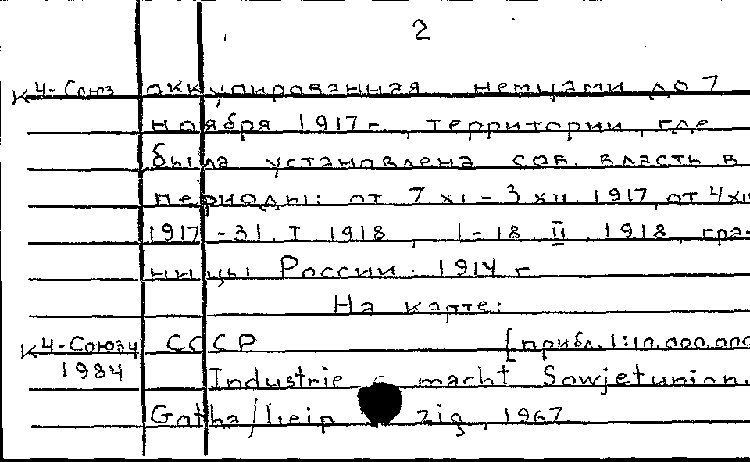 2
К4-Союз оккупированная немцами до 7
ноября 1917 г., территории, где
была установлена сов. власть в
периоды: от 7 XI - 3 XII 1917, от 4 XII
1917 - 31. I 1918, 1-18 II 1918, гра-
ницы России 1914 г
На карте:
К4-Союз 4 СССР [прибл. 1:10.000.000
1984 Industrie macht Sowjetunion.
Gotha/Leipzig, 1967